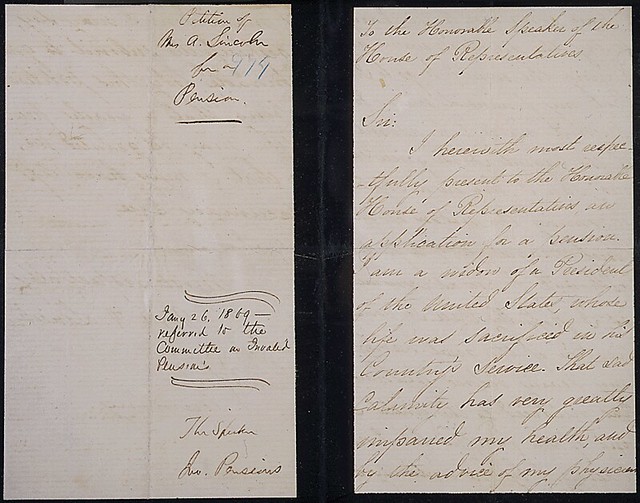 Petition of
Mrs A. Lincoln
for a 779
Pension.
Jany 26. 1869—
referred to the
Committee on Invalid
Pensions
The Speaker
Inv. Pensions
To the Honorable Speaker of the
House of Representatives
Sir:
I herewith most respe-
-tfully present to the Honorable
House of Representatives an
application for a pension.
I am a widow of a President
of the United States, whose
life was sacrificed in his
Country's Service. That sad
Calamity has very greatly
impaired my health, and
by the advice of my physician